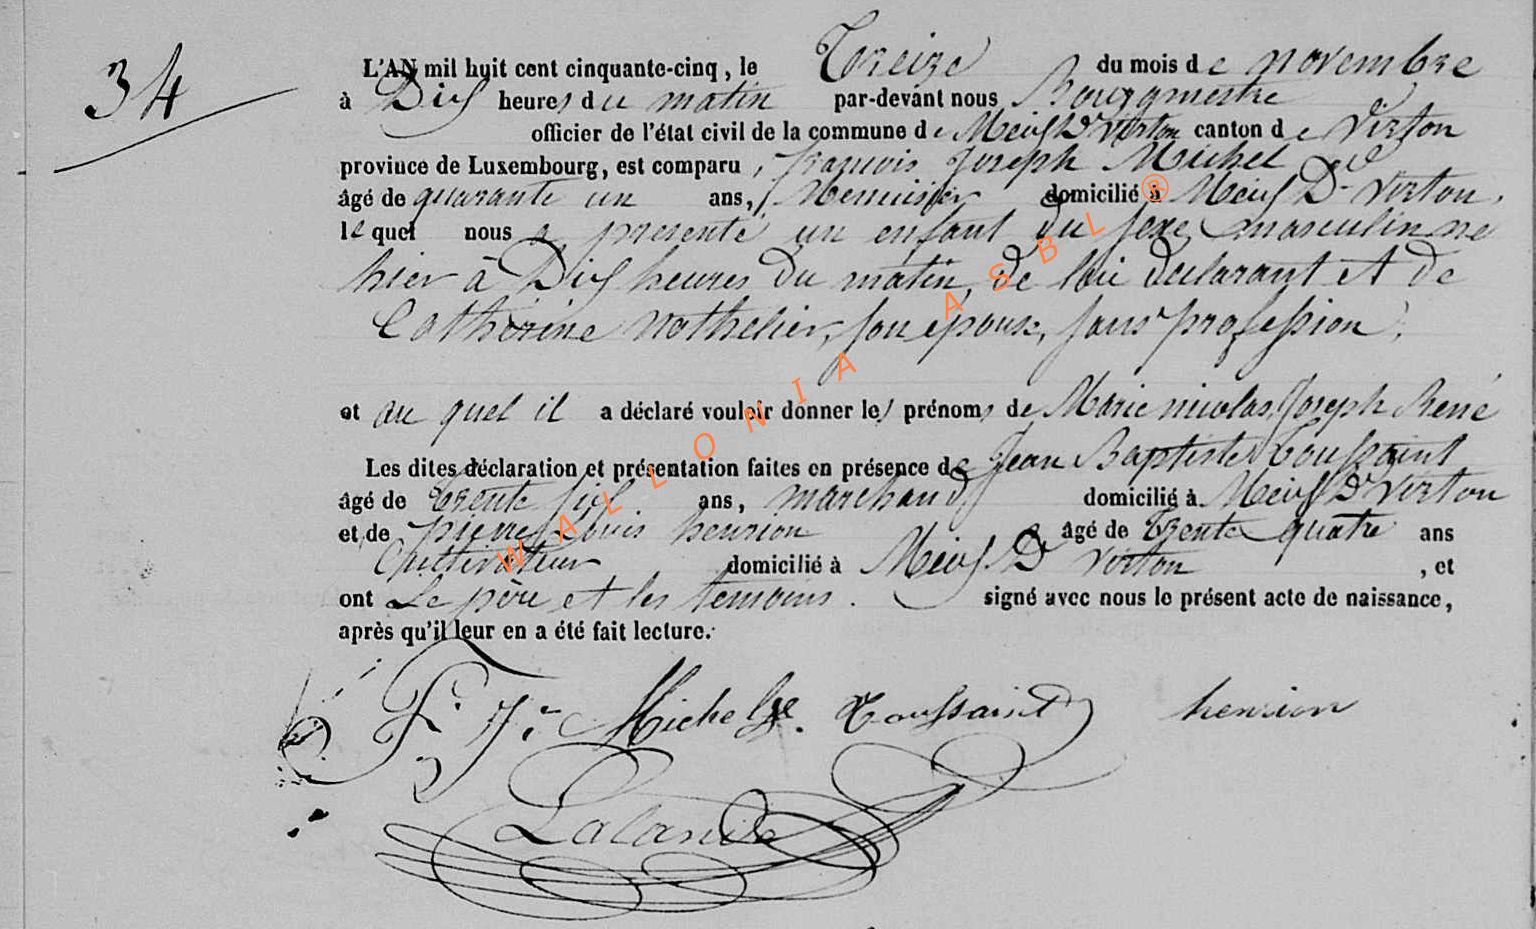 34
L'AN mil huit cent cinquante-cinq, le Treize du mois de novembre
à Dix heures du matin par-devant nous Bourgmestre
officier de l'état civil de la commune de Meix Dt Virton canton de Virton
province de Luxembourg, est comparu, françois Joseph Michel
âgé de quarante un ans, Menuisier domicilié à Meix Dt Virton,
lequel nous a présenté un enfant du sexe masculin né
hier à Dix heures du matin, de lui déclarant et de
Catherine nothelier, son épouse, sans profession,
et au quel il a déclaré vouloir donner les prénoms de Marie nicolas Joseph René
Les dites déclaration et présentation faites en présence de Jean Baptiste Toussaint
âgé de Trente six ans, marchand domicilié à Meix Dt Virton
et de pierre Louis henrion âgé de Trente quatre ans
Cultivateur domicilié à Meix Dt Virton, et
ont Le père et les temoins. signé avec nous le présent acte de naissance,
après qu'il leur en a été fait lecture.
F. J. Michel Toussaint henrion
Lalande
WALLONIA ASBL ®